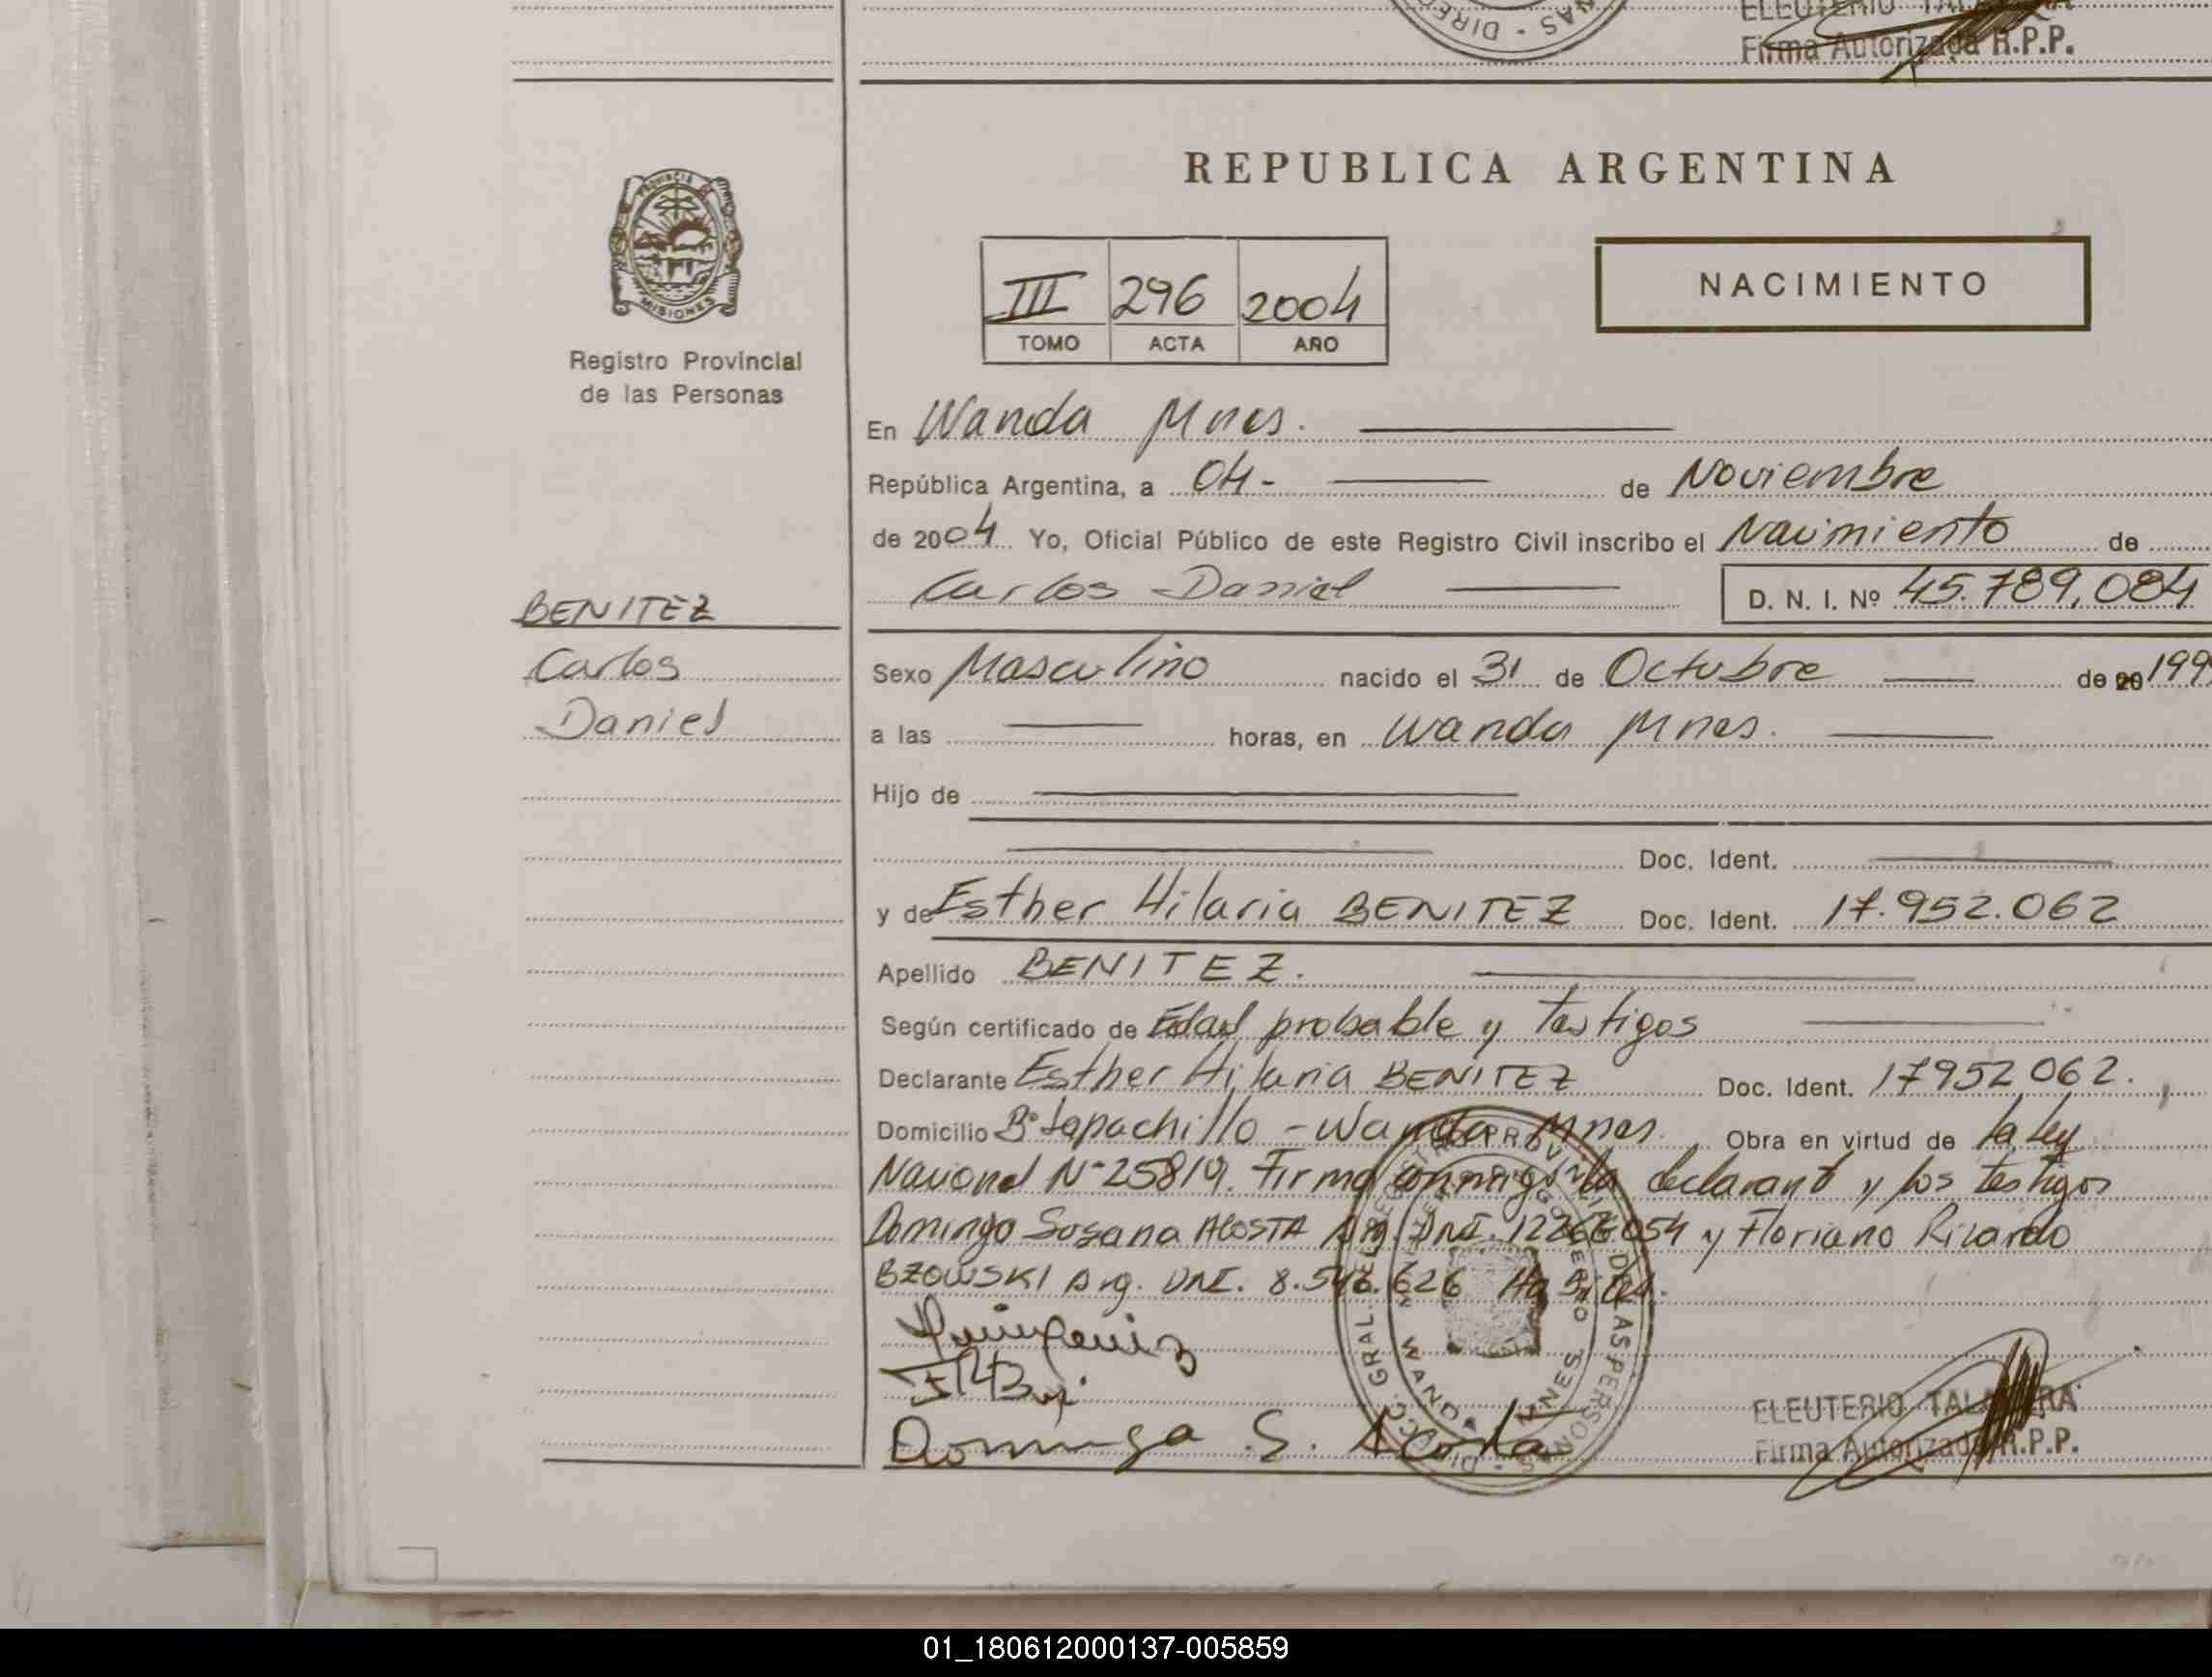 ELEUTERIO
Firma Autorizada R.P.P.
NAS - DIREC
REPUBLICA ARGENTINA
PROVINCIA
MISIONES
Registro Provincial
de las Personas
III 296 2004
TOMO ACTA AÑO
NACIMIENTO
En Wanda Mnes.
República Argentina, a 04- de Noviembre
de 2004 Yo, Oficial Público de este Registro Civil inscribo el Nacimiento de
Carlos Daniel D. N. I. Nº 45.789,084
BENITEZ
Carlos
Daniel
Sexo Masculino nacido el 31 de Octubre de 20 199
a las horas, en Wanda Mnes.
Hijo de
Doc. Ident.
y de Esther Hilaria BENITEZ Doc. Ident. 17.952.062
Apellido BENITEZ.
Según certificado de Edad probable y Testigos
Declarante Esther Hilaria BENITEZ Doc. Ident. 17952062.
Domicilio Bº Lapachillo - Wanda Mnes. Obra en virtud de la Ley
Nacional Nº 25819. Firma conmigo la declarant y los testigos
Dominga Susana ACOSTA Arg. DNI. 12266054 y Floriano Ricardo
BZOWSKI Arg. DNI. 8.546.626
Dominga S. Acosta
WANDA MNES
ELEUTERIO TALAVERA
Firma Autorizada R.P.P.
01_180612000137-005859